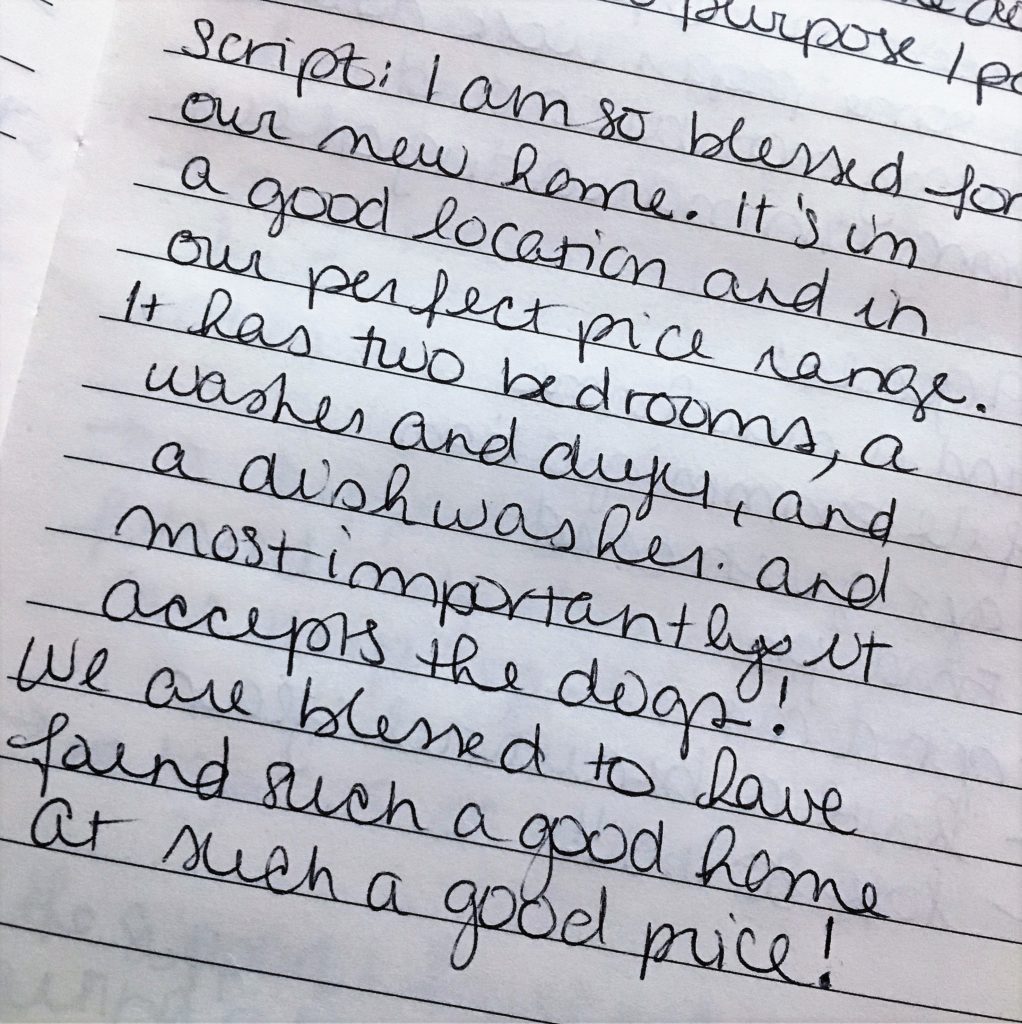 purpose I
script: I am so blessed for
our new home. It's in
a good location and in
our perfect price range.
It has two bedrooms, a
washer and dryer, and
a dishwasher. and
most importantly it
accepts the dogs!
We are blessed to have
found such a good home
at such a good price!